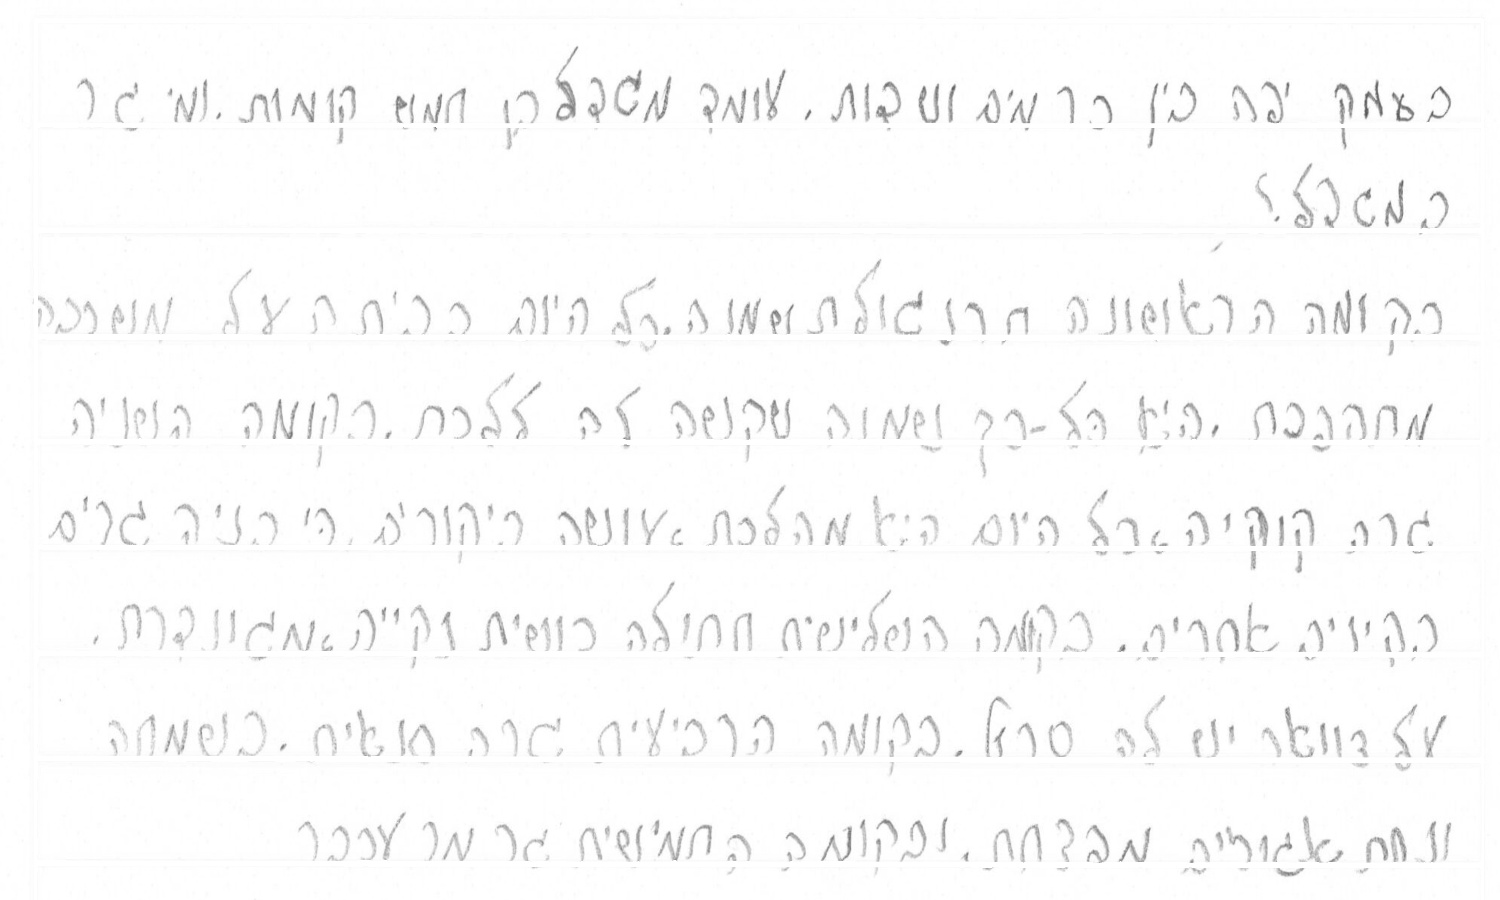 בעמק יפה בין כרמים ושדות, עומד מגדל בן חמש קומות. ומי גר
במגדל?
בקומה הראשונה תרנגולת שמנה. כל היום בביתה על משכבה
מתהפכת. היא כל-כך שמנה שקשה לה ללכת. בקומה השניה
גרה קוקיה. כל היום היא מהלכת, עושה ביקורים, כי בניה גרים
בקינים אחרים. בקומה השלישית חתולה כושית נקייה, מגונדרת.
על צווארה יש לה סרט. בקומה הרביעית גרה סנאית. בשמחה
ונחת אגוזים מפצחת. ובקומה החמישית גר מר עכבר